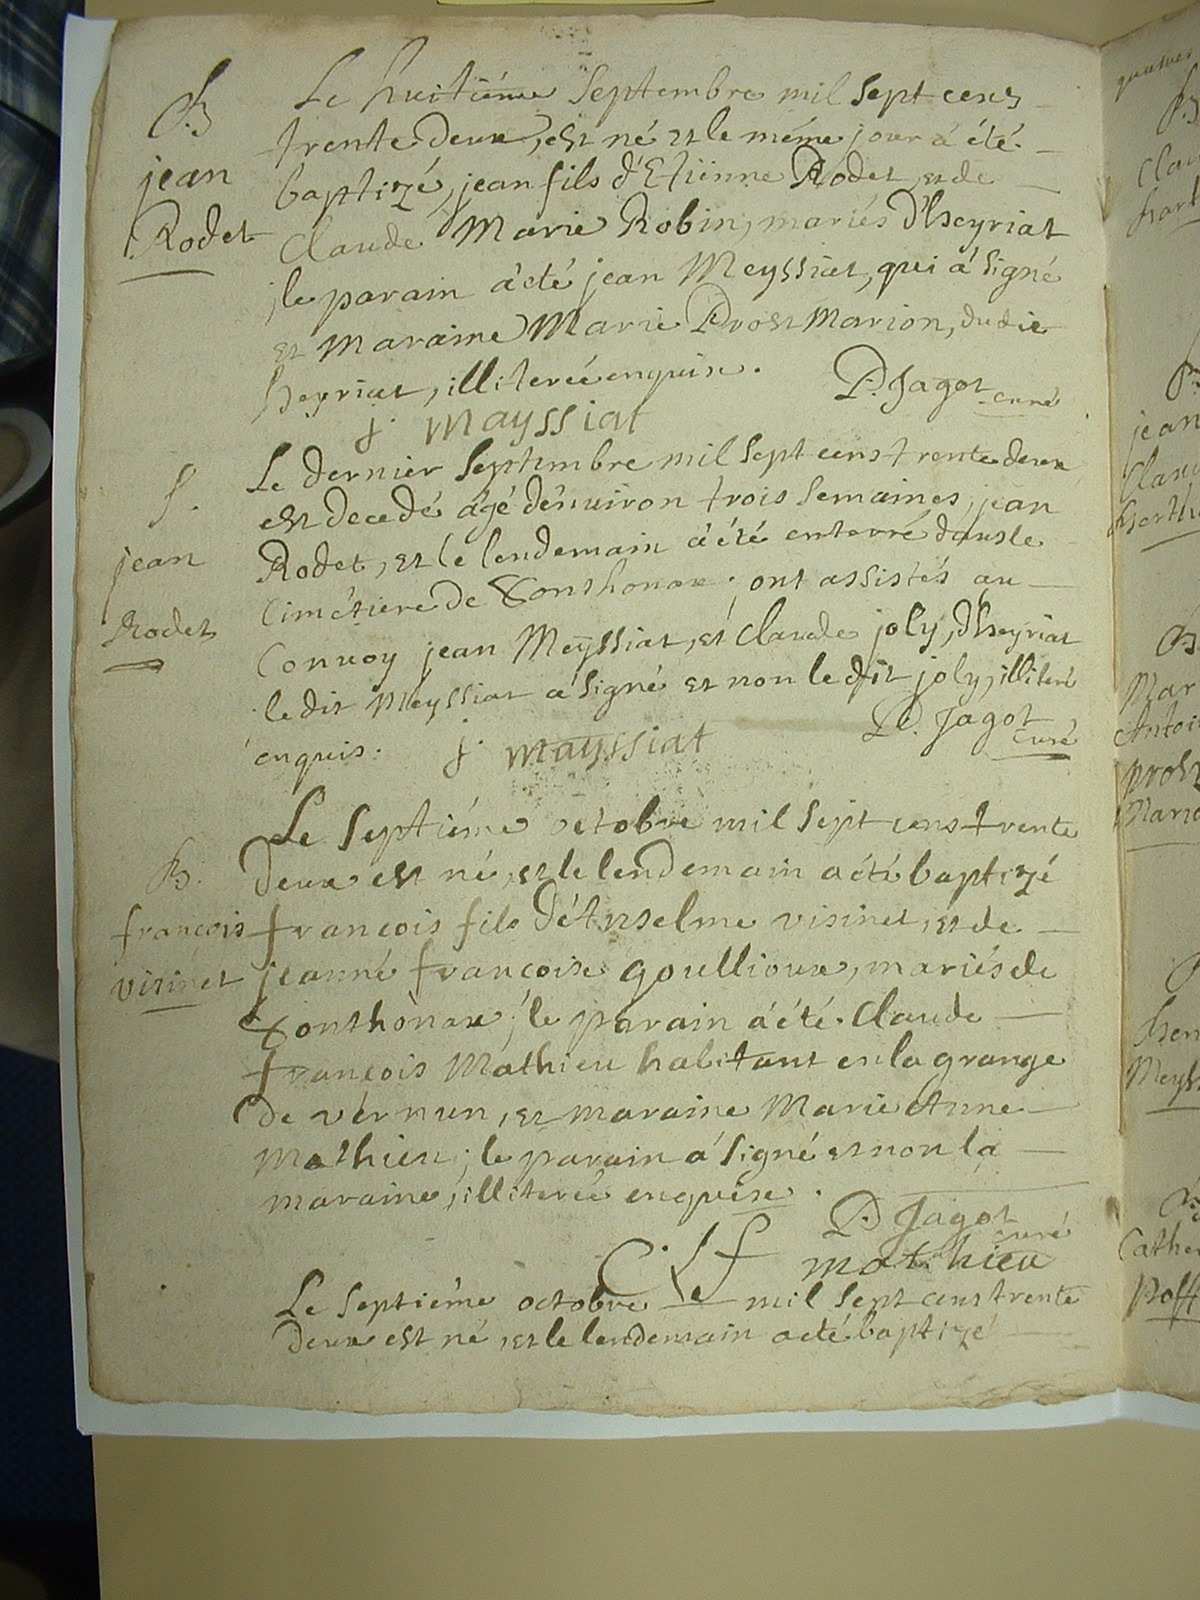 B
jean
Rodet
Le huitiéme Septembre mil Sept cens
trente deux, est né et le méme jour á été
baptizé, jean fils d'Etienne Rodet, et de
Claude Marie Robin, mariés d'heyriat
; le parain á été jean Meyssiat, qui á Signé
et Maraine Marie Prost Marion, dudit
heyriat, illiterée enquise.
P. Jagot curé
j. mayssiat
S.
jean
Rodet
Le dernier Septembre mil Sept cens trente deux
est decedé ágé dénuiron trois Semaines, jean
Rodet, et le lendemain á été enterré dans le
Cimétiere de Sonthonax ; ont assistés au
Conuoy jean Meyssiat, et Claude joly, d'heyriat
le dit Meyssiat a Signé et non le dit joly, illiteré
enquis.
P. Jagot curé
j. mayssiat
B.
françois
visinet
Le Septiéme octobre mil Sept cens trente
deux est né, et le lendemain a été baptizé
françois fils d'Anselme visinet, et de
jeanne françoise goullioux, mariés de
Sonthonax ; le parain á été Claude
françois Mathieu habitant en la grange
de vernun, et maraine Marie Anne
Mathieu ; le parain á Signé et non la
maraine, illiterée enquise.
P. Jagot curé
C. f mathieu
Le Septiéme octobre mil Sept cens trente
deux est né, et le lendemain a été baptizé
B
jean
B
Mar
Antoi
prost
Mario
Meyss
Cathe